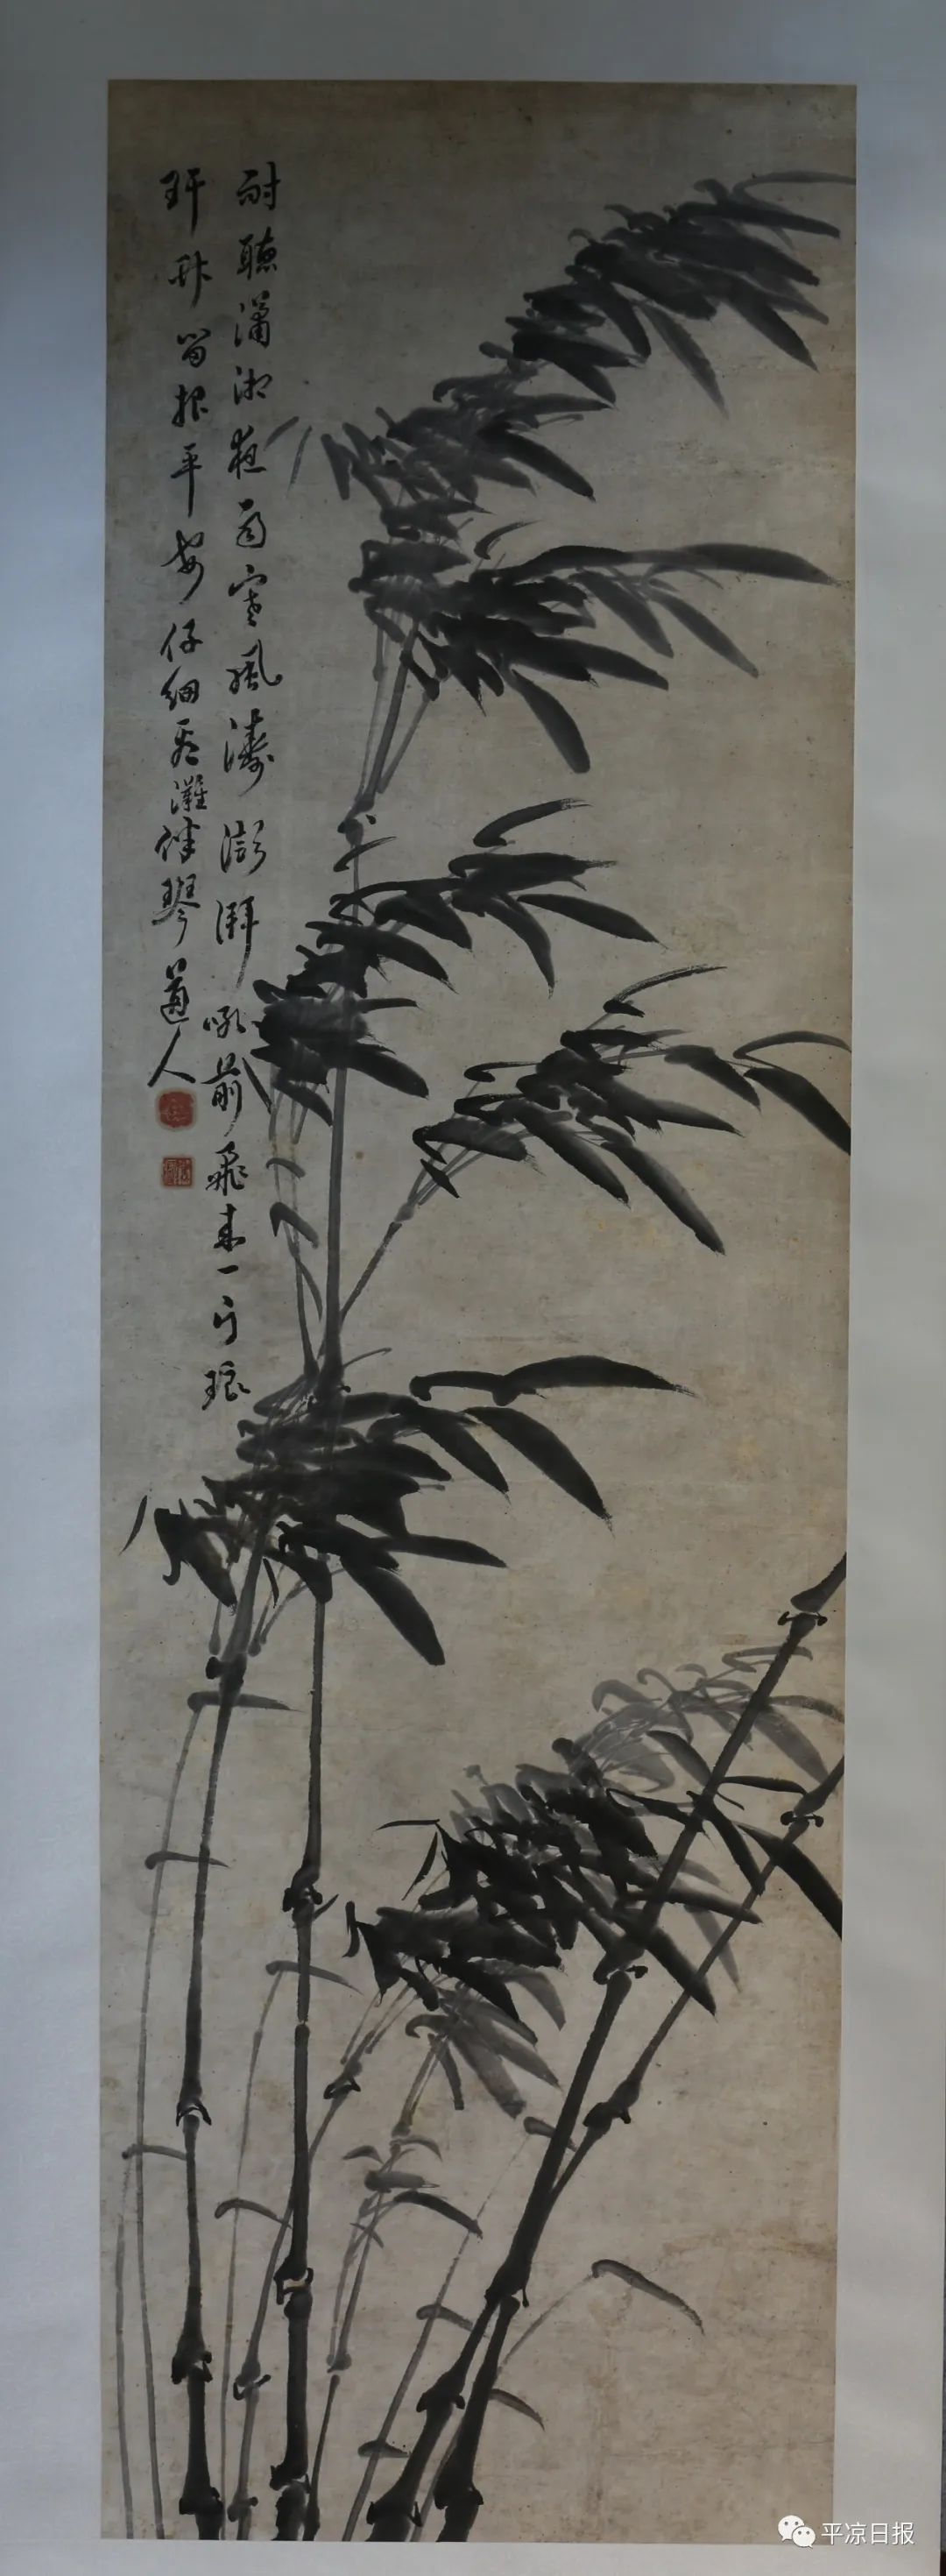 耐聽瀟湘夜雨寒風濤澎湃吼前飛來一片琅
玕竹留報平安仔細看灘伴琴道人
平凉日报